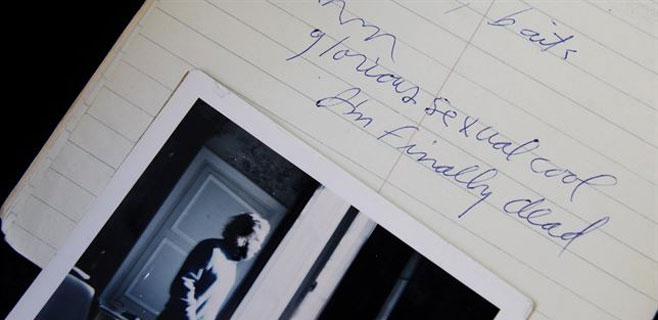 baits
glorious sexual cool
I'm finally dead